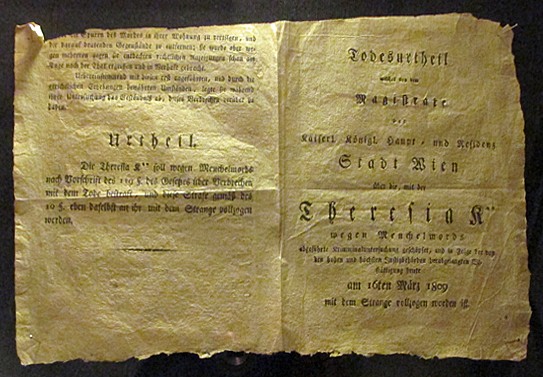 die Spuren des Mordes in ihrer Wohnung zu vertilgen, und
die darauf deutenden Gegenstände zu entfernen; sie wurde aber we-
gen mehrerer gegen sie entdeckten rechtlichen Anzeigungen schon am
Tage nach der That ergriffen und in Verhaft gebracht.
Uebereinstimmend mit denen erst angeführten, und durch die
gerichtlichen Erhebungen bewährten Umständen, legte sie während
der Untersuchung das Geständniß ab, dieses Verbrechen verübet zu
haben.
Urtheil.
Die Theresia K** soll wegen Meuchelmords
nach Vorschrift des 119 §. des Gesetzes über Verbrechen
mit dem Tode bestraft, und diese Strafe gemäß des
10 §. eben daselbst an ihr mit dem Strange vollzogen
werden.
Todesurtheil
welches von dem
Magistrate
der
Kaiserl. Königl. Haupt- und Residenz
Stadt Wien
über die, mit der
Theresia K**
wegen Meuchelmords
abgeführte Kriminaluntersuchung geschöpfet, und in Folge der von
den hohen und höchsten Justizbehörden herabgelangten Be-
stättigung heute
am 16ten März 1809
mit dem Strange vollzogen worden ist.